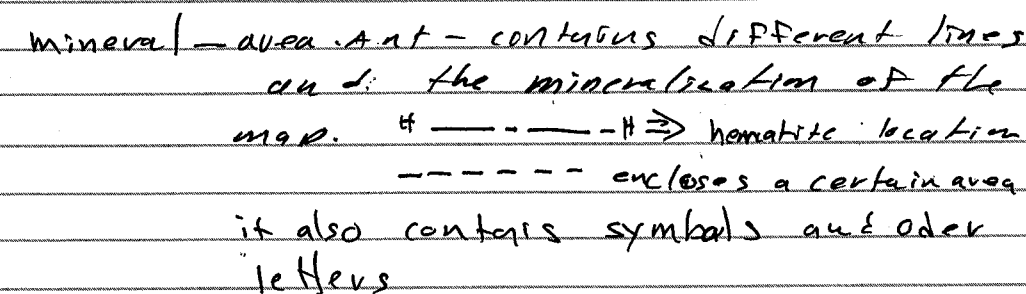 mineral - area.Ant - contains different lines
and: the mineralisation of the
map. H — - — - H ⇒ hematite location
- - - - - - encloses a certain area
it also contais symbols and oder
letters